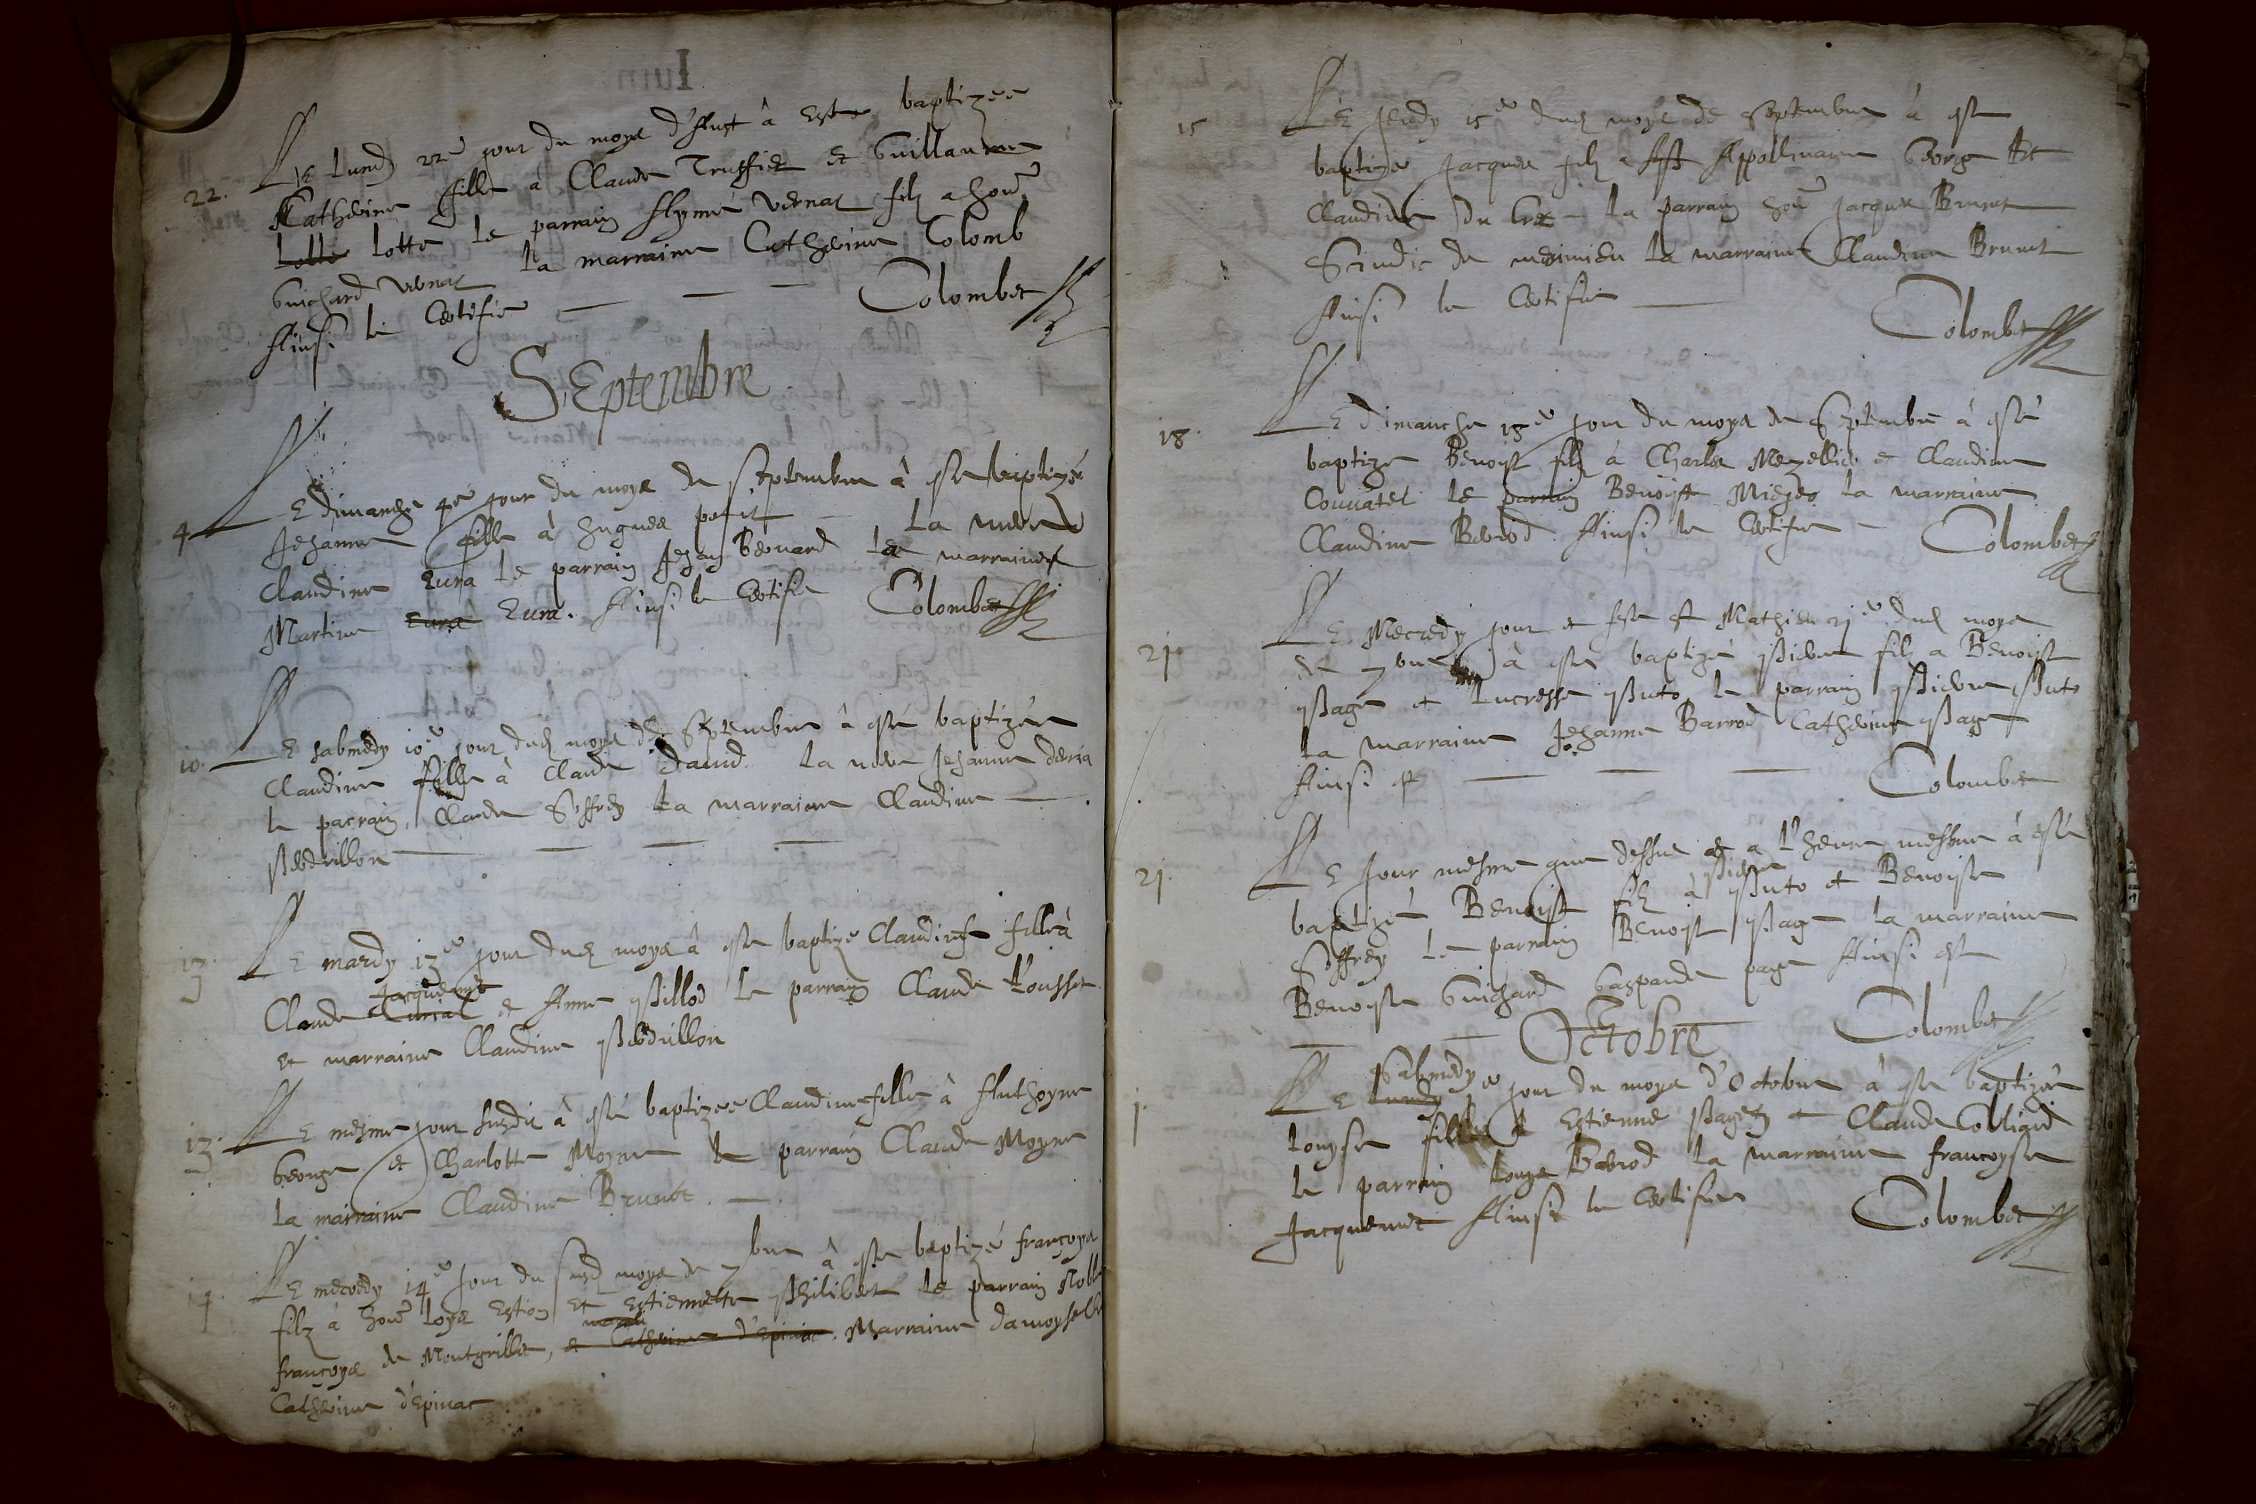 22. Le Lundy 22e jour du moys d'Aust à esté baptizée
Catherine fille à Claude Truffier et Guillaume
Lotte Lotte le parrain Aymé Vernat filz a hon.
Guichard Vernat la marraine Catherine Colomb
Ainsi le Certifie Colombet
Septembre
4 Le dimanche 4e jour du moys de Septembre à esté baptizé
Jehanne fille à Hugues petit La mere
Claudine Eura le parrain Jehan Beouard Les marraines
Martine Eura Eura. Ainsi le Certifie Colombet
10. Le sabmedy 10e jour dud moys de Septembre à esté baptizée
Claudine fille à Claude David La mere Jehanne derria
le parrain Claude Siffrey la marraine Claudine
Perdrillon
13. Le mardy 13e jour dud moys à esté baptize Claudine fille à
Jacquemet
Claude et Anne Pillod le parrain Claude Rousset
et marraine Claudine Perdrillon
13. Le mesme jour susdit à esté baptizée Claudine fille à Anthoyne
George et Charlotte Moyne le parrain Claude Moyne
la marraine Claudine Brunet.
14 Le mecredy 14e jour du susd moys de 7bre à esté baptizé françoys
filz à hon. Loys Estion et Estiennette Philibert le parrain Noble
françoys de Montgrillet, et Catherine d'Epinac. Marraine damoyselle
Catherine d'Epinac
15 Le Jeudy 15e dud moys de Septembre à esté
baptize Jacques filz a Appollinaire George et
Claudine du Cre la parrain hon. Jacques Brunet
Scindic de meximieu la marraine Claudine Brunet
Ainsi le Certifie
Colombet
18. Le Dimanche 18e jour du moys de Septembre à esté
baptize Benoist filz à Charles Mezellier et Claudine
Couvatet le parrain Benoist Miegeo la marraine
Claudine Bebrod. Ainsi le Certifie Colombet
21. Le Mecredy jour et feste St Mathieu 21e dud moys
de 7bre à esté baptizé Pierre filz a Benoist
Page et Lucresse Puto le parrain Pierre Puto
la marraine Jehanne Barrod Catherine Page
Ainsi est Colombet
21. Le Jour mesme que dessus et a l'heure mesme à esté
Pierre
baptizé Benoist filz à Puto et Benoiste
Siffrey le parrain Benoist Page la marraine
Benoiste Guichard Gasparde page Ainsi est
Octobre Colombet
Sabmedy
1. Le Lundy 1e jour du moys d'Octobre à esté baptizée
Louyse fille à Estienne Pagey et Claude Colliard
le parrain Louys Bebrod la marraine francoyse
Jacquemet Ainsi le Certifie Colombet